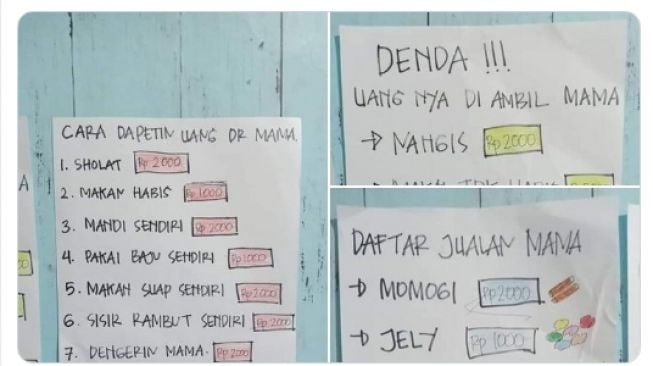 CARA DAPETIN UANG DR MAMA.
1. SHOLAT Rp 2000
2. MAKAN HABIS Rp 1000
3. MANDI SENDIRI Rp 2000
4. PAKAI BAJU SENDIRI Rp 1000
5. MAKAN SUAP SENDIRI Rp 2000
6. SISIR RAMBUT SENDIRI Rp 2000
7. DENGERIN MAMA. Rp 2000
DENDA !!!
UANG NYA DI AMBIL MAMA
→ NANGIS Rp 2000
DAFTAR JUALAN MAMA
→ MOMOGI Rp 2000
→ JELY Rp 1000